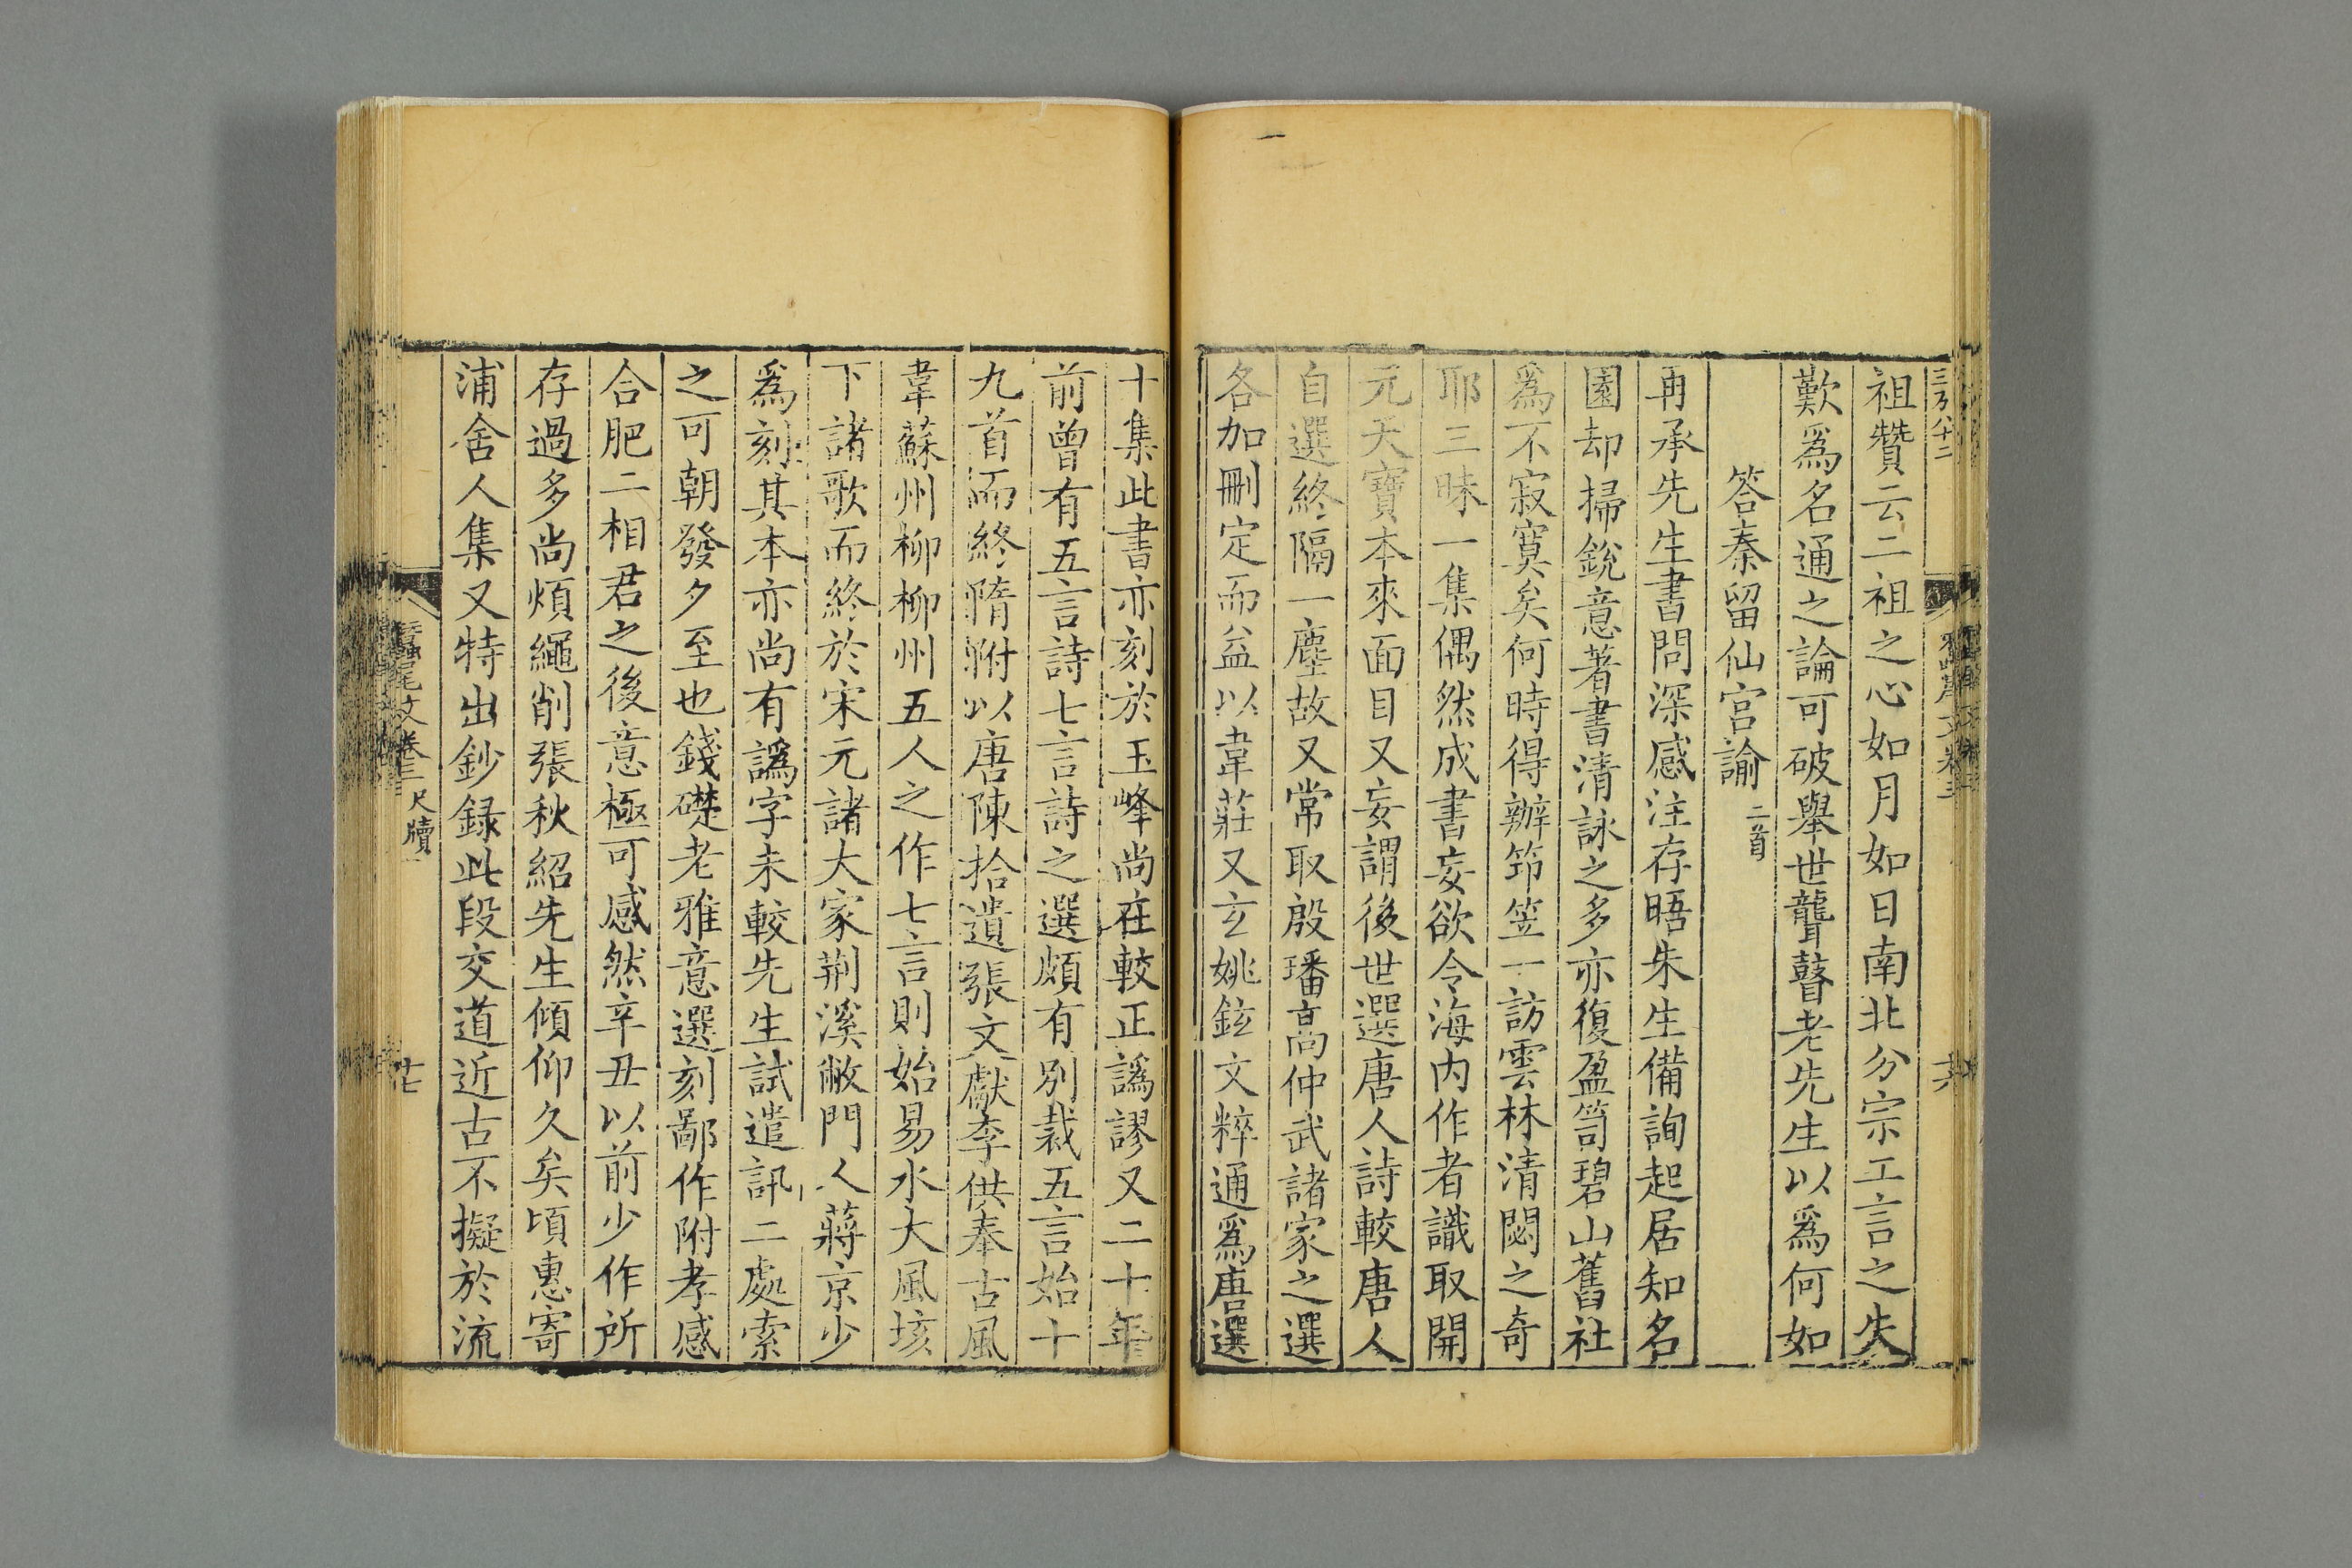 三百八十二
祖贊云二祖之心如月如日南北分宗工言之失
歎爲名通之論可破舉世聾瞽老先生以爲何如
答秦留仙宮諭二首
再承先生書問深感注存晤朱生備詢起居知名
園却掃銳意著書清詠之多亦復盈笥碧山舊社
爲不寂寞矣何時得辦笻笠一訪雲林清閟之奇
耶三昧一集偶然成書妄欲令海內作者識取開
元天寶本來面目又妄謂後世選唐人詩較唐人
自選終隔一塵故又常取殷璠高仲武諸家之選
各加刪定而益以韋莊又玄姚鉉文粹通爲唐選
十六
十集此書亦刻於玉峰尚在較正譌謬又二十年
前曾有五言詩七言詩之選頗有別裁五言始十
九首而終隋附以唐陳拾遺張文獻李供奉古風
韋蘇州柳柳州五人之作七言則始易水大風垓
下諸歌而終於宋元諸大家荆溪敝門人蔣京少
爲刻其本亦尚有譌字未較先生試遣訊二處索
之可朝發夕至也錢礎老雅意選刻鄙作附孝感
合肥二相君之後意極可感然辛丑以前少作所
存過多尚煩繩削張秋紹先生傾仰久矣頃惠寄
浦舍人集又特出鈔録此段交道近古不擬於流
蠶尾文卷三 尺牘一
十七